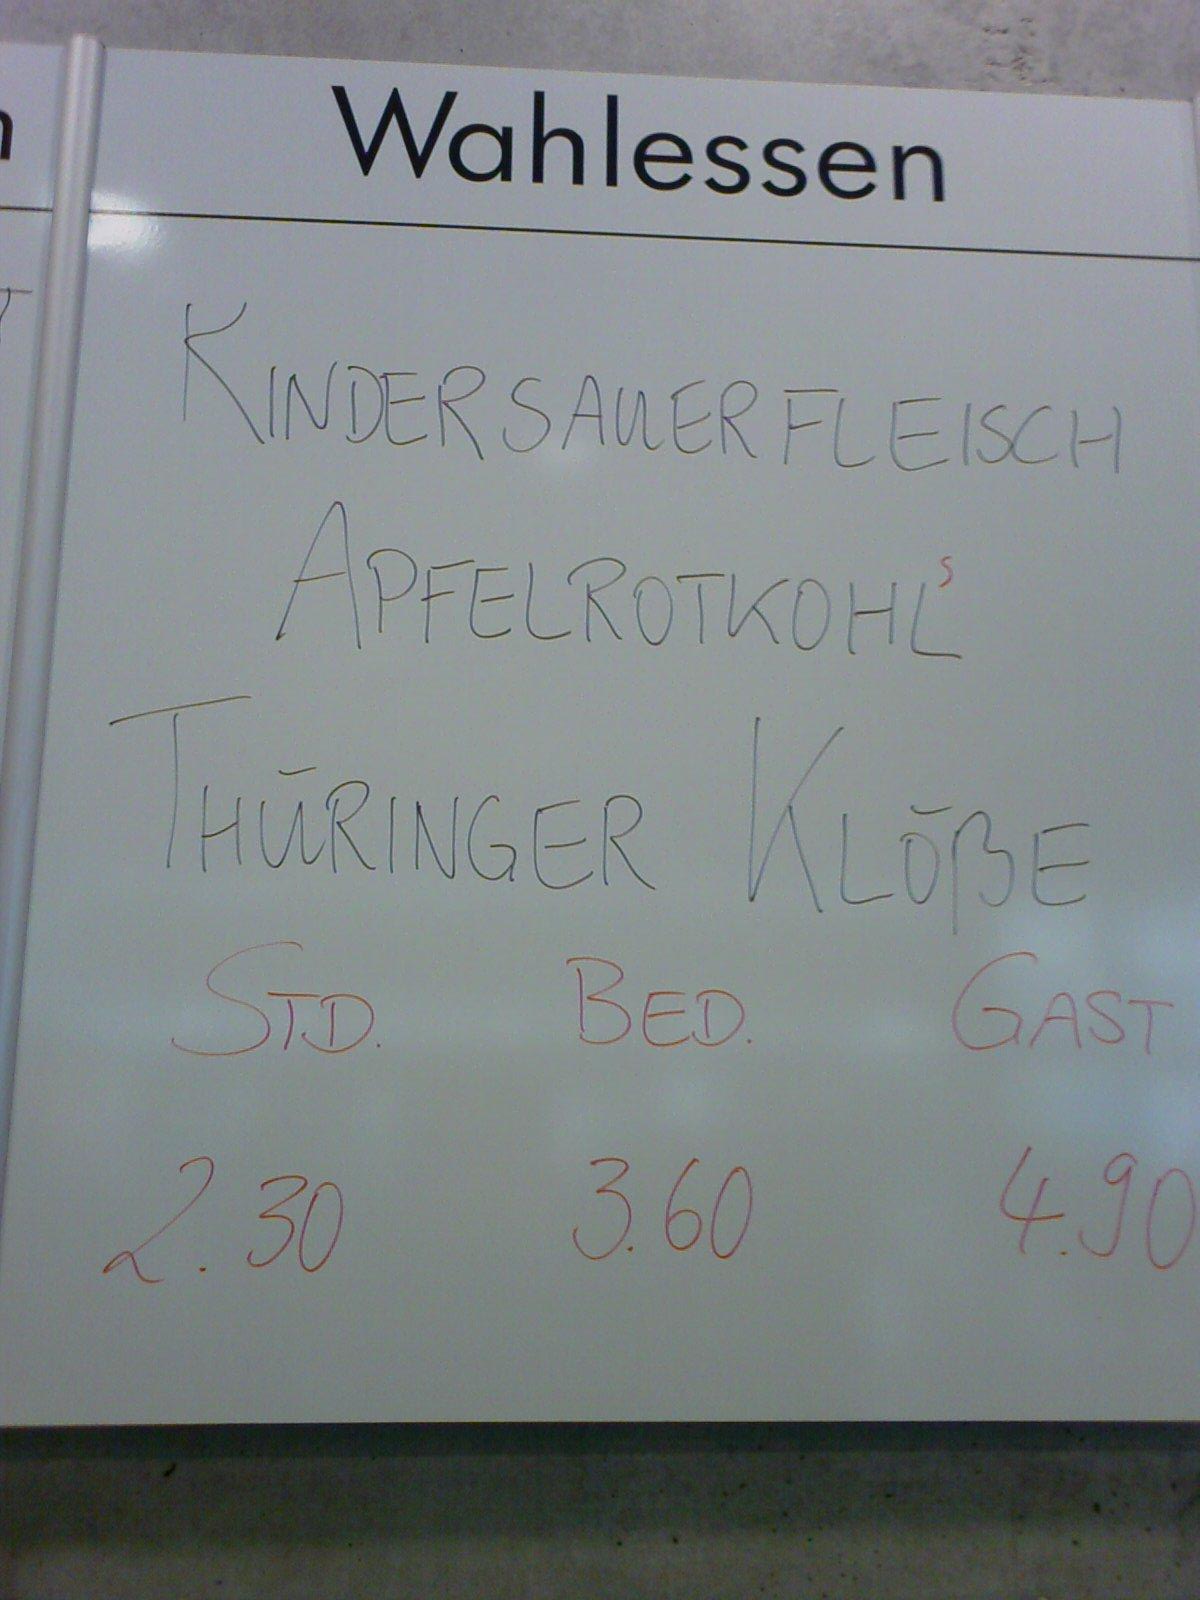 Wahlessen
KINDERSAUERFLEISCH
APFELROTKOHL S
THÜRINGER KLÖßE
STD. BED. GAST
2.30 3.60 4.90